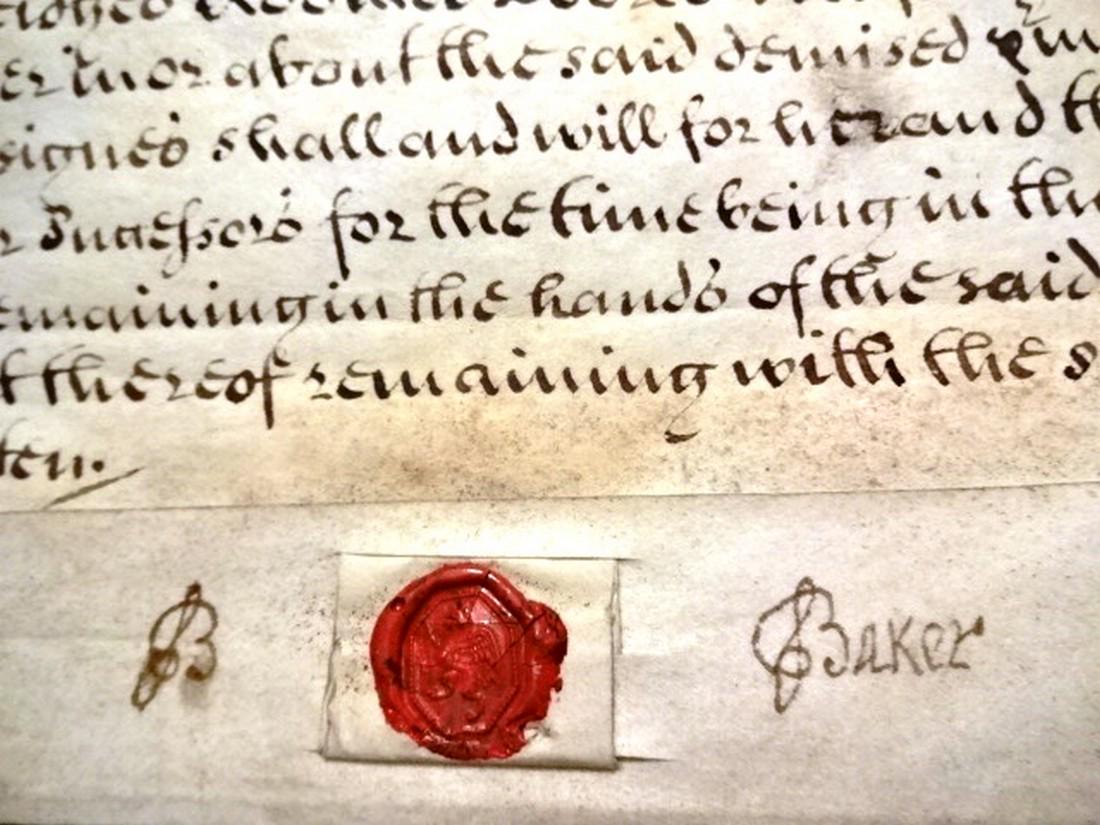 er in or about the said demised
signes shall and will for her and th
r Successors for the time being in the
emaining in the hands of the said
t thereof remaining with the s
ten.
B
Baker